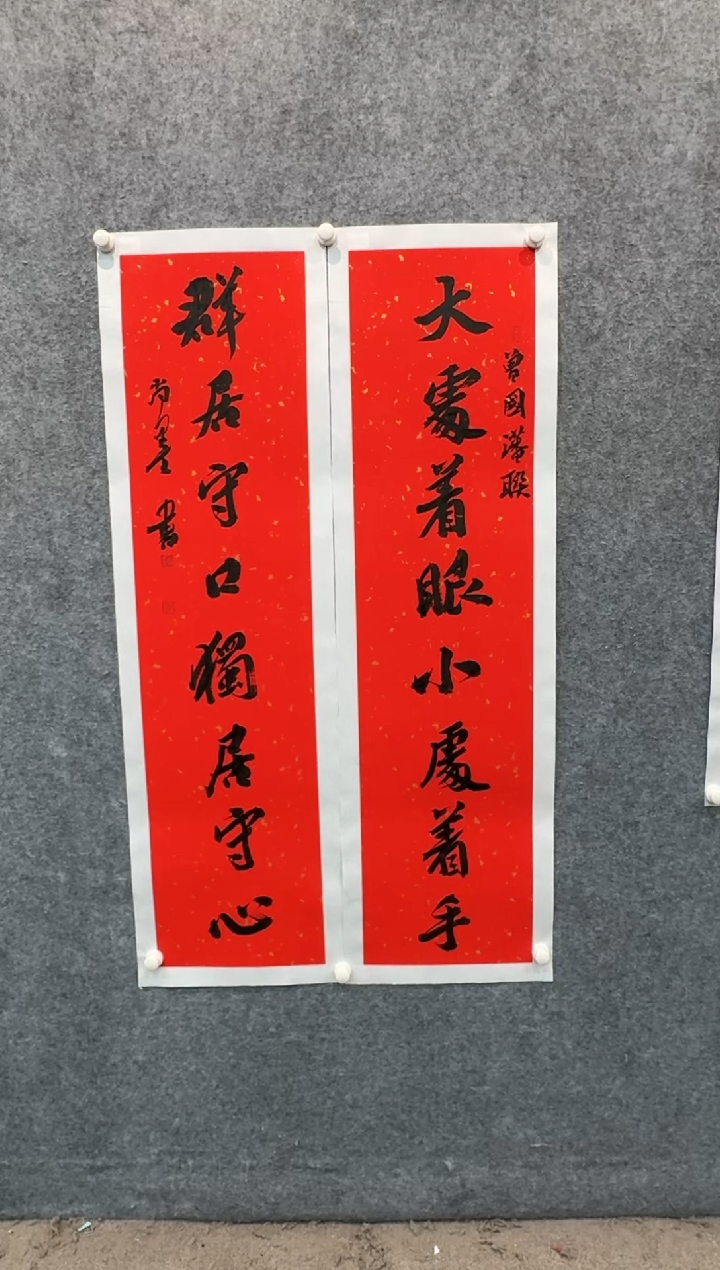 大處着眼小處着手
曾國藩聯
群居守口獨居守心
尚墨書